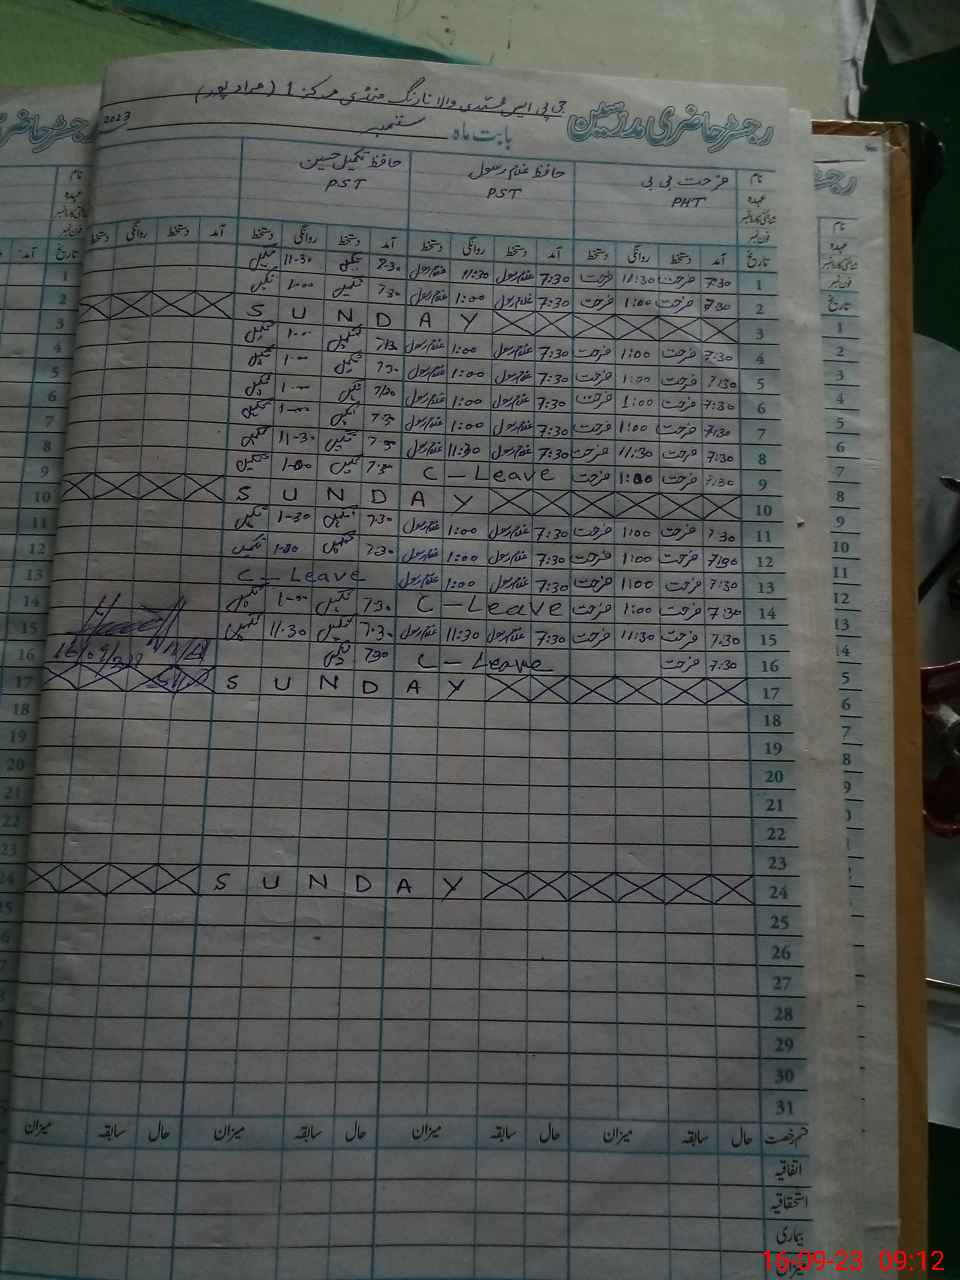 رجسٹر حاضری مدرسین
بابت ماہ ستمبر 2023
نام فرحت بی بی حافظ غلام رسول حافظ تکمیل حسین
عہدہ PHT PST PST
فون نمبر
تاریخ آمد دستخط روانگی دستخط آمد دستخط روانگی دستخط آمد دستخط روانگی دستخط آمد دستخط روانگی دستخط
1 7:30 فرحت 11:30 فرحت 7:30 غلام رسول 11:30 غلام رسول 7.30 تکمیل 11-30 تکمیل
2 7:30 فرحت 1:00 فرحت 7:30 غلام رسول 1:00 غلام رسول 7.30 تکمیل 1-00 تکمیل
3 SUNDAY
4 7:30 فرحت 1:00 فرحت 7:30 غلام رسول 1:00 غلام رسول تکمیل 1-00 تکمیل
5 7:30 فرحت 1:00 فرحت 7:30 غلام رسول 1:00 غلام رسول 7.30 تکمیل 1-00 تکمیل
6 7:30 فرحت 1:00 فرحت 7:30 غلام رسول 1:00 غلام رسول 7.30 تکمیل 1-00 تکمیل
7 7:30 فرحت 1:00 فرحت 7:30 غلام رسول 1:00 غلام رسول 7.30 تکمیل 1-00 تکمیل
8 7:30 فرحت 11:30 فرحت 7:30 غلام رسول 11:30 غلام رسول 7.30 تکمیل 11-30 تکمیل
9 7:30 فرحت 1:00 فرحت C-Leave 7.30 تکمیل 1-00 تکمیل
10 SUNDAY
11 7:30 فرحت 1:00 فرحت 7:30 غلام رسول 1:00 غلام رسول 7.30 تکمیل 1-30 تکمیل
12 7:30 فرحت 1:00 فرحت 7:30 غلام رسول 1:00 غلام رسول 7.30 تکمیل 1-00 تکمیل
13 7:30 فرحت 1:00 فرحت 7:30 غلام رسول 1:00 غلام رسول C-Leave
14 7:30 فرحت 1:00 فرحت C-Leave 7.30 تکمیل 1-00 تکمیل
15 7:30 فرحت 11:30 فرحت 7:30 غلام رسول 11:30 غلام رسول 7.30 تکمیل 11.30 تکمیل
16 7:30 فرحت C-Leave 7.30 تکمیل
17 SUNDAY
18
19
20
21
22
23
24 SUNDAY
25
26
27
28
29
30
31
قسم رخصت حال سابقہ میزان حال سابقہ میزان حال سابقہ میزان حال سابقہ میزان
اتفاقیہ
استحقاقیہ
بیماری
میزان
16-09-23 09:12